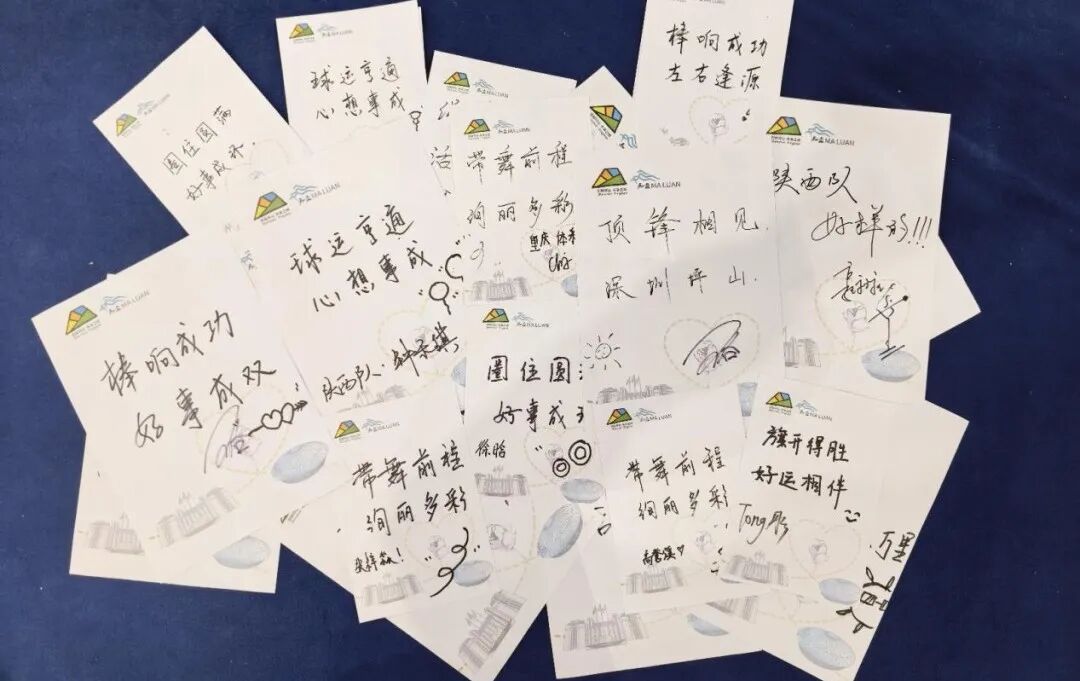 圈位圆满
好事成环.
MALUAN
球运亨通
心想事成
棒响成功
左右逢源
MALUAN
带舞前程
绚丽多彩
重庆 体
MALUAN
陕西队
好样的!!!
MALUAN
球运亨通
心想事成
陕西队.
MALUAN
顶锋相见.
深圳坪山.
MALUAN
棒响成功
好事成双
MALUAN
圈位圆
好事成
徐晗
MALUAN
带舞前程
绚丽多彩
MALUAN
带舞前程
绚丽多彩
MALUAN
旗开得胜
好运相伴
Tong彤
万里